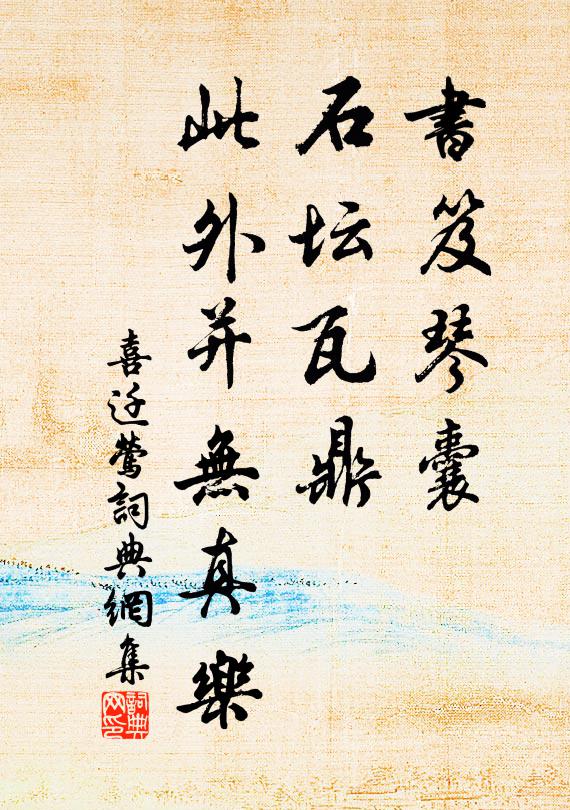 書笈琴囊
石坛瓦鼎
此外并無真樂
喜迁鶯詞典網集
詞典
网印